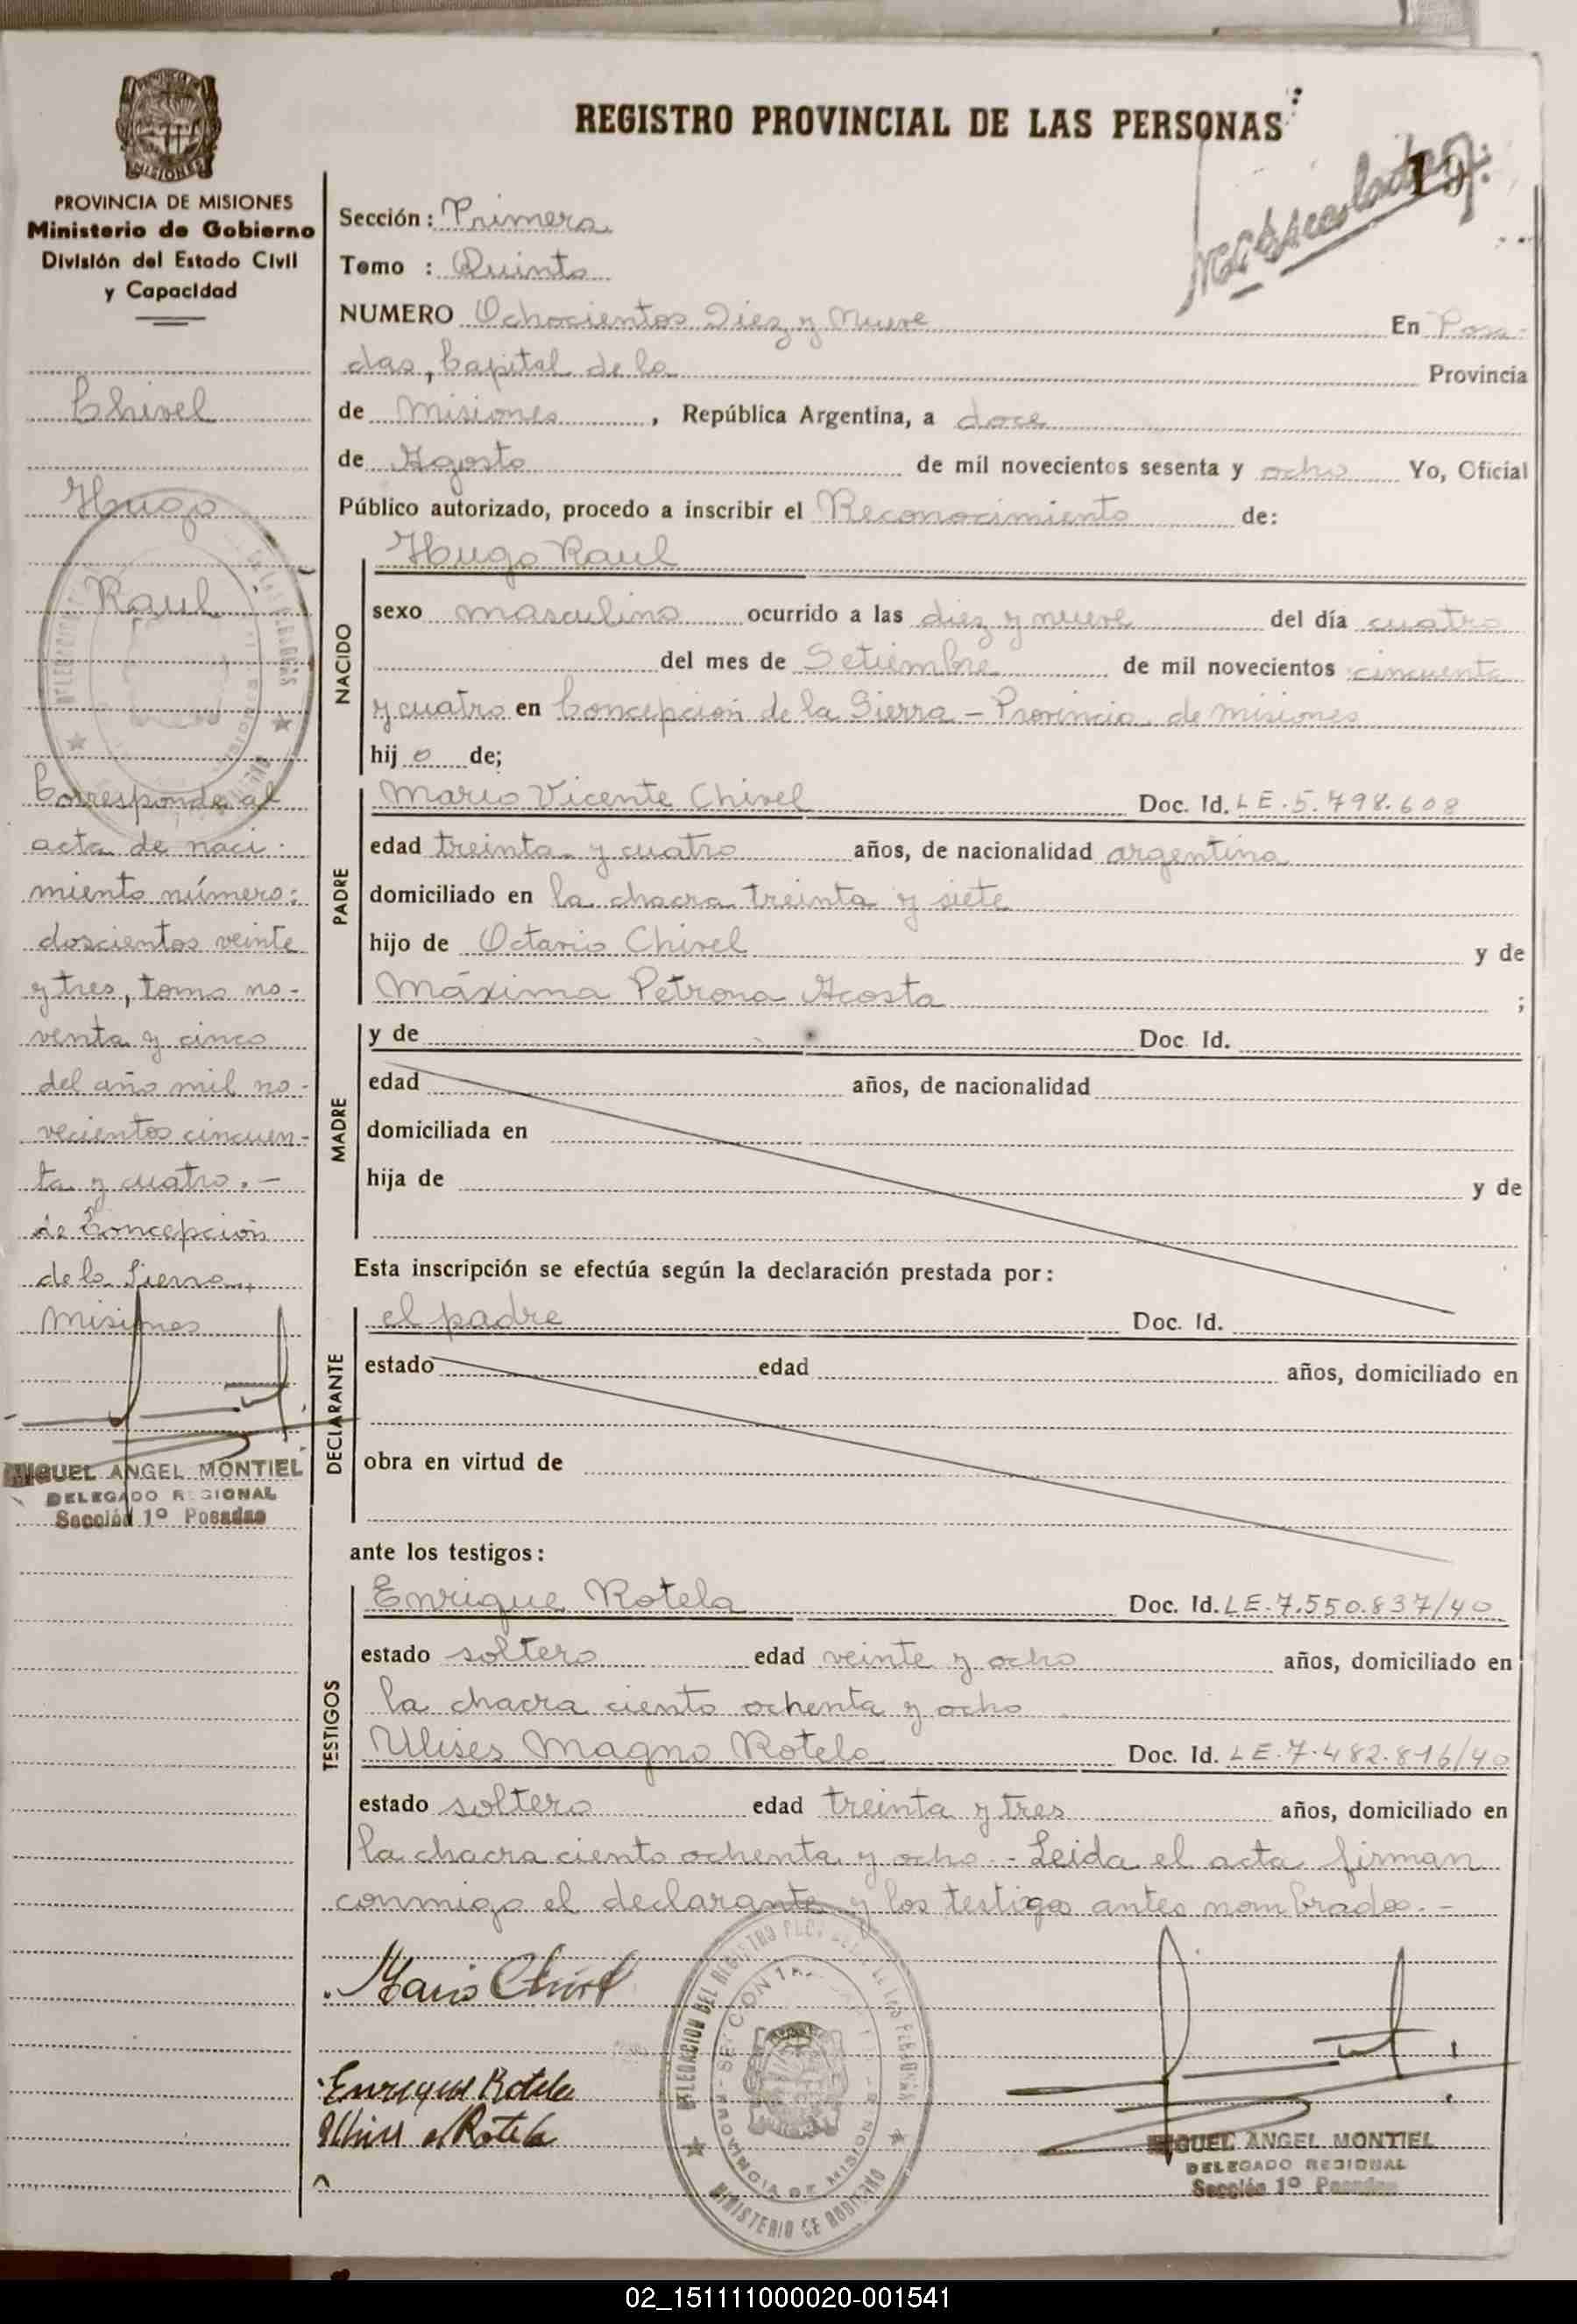 REGISTRO PROVINCIAL DE LAS PERSONAS
MISIONES
PROVINCIA DE MISIONES
Ministerio de Gobierno
División del Estado Civil
y Capacidad
Chivel
Hugo
Raul
Corresponde al
acta de naci-
miento número:
doscientos veinte
y tres, tomo no-
venta y cinco
del año mil no-
vecientos cincuen-
ta y cuatro.-
de Concepción
de la Sierra,
Misiones
MIGUEL ANGEL MONTIEL
DELEGADO REGIONAL
Sección 1º Posadas
Sección: Primera
Tomo : Quinto
NUMERO Ochocientos Diez y Nueve En Posa-
das, Capital de la Provincia
de Misiones, República Argentina, a doce
de Agosto de mil novecientos sesenta y ocho Yo, Oficial
Público autorizado, procedo a inscribir el Reconocimiento de:
NACIDO
Hugo Raul
sexo masculino ocurrido a las diez y nueve del día cuatro
del mes de Setiembre de mil novecientos cincuenta
y cuatro en Concepción de la Sierra - Provincia de Misiones
hijo de;
PADRE
Mario Vicente Chivel Doc. Id. LE.5.798.608
edad treinta y cuatro años, de nacionalidad argentina
domiciliado en la chacra treinta y siete
hijo de Octavio Chivel y de
Máxima Petrona Acosta ;
MADRE
y de Doc. Id.
edad años, de nacionalidad
domiciliada en
hija de y de
Esta inscripción se efectúa según la declaración prestada por:
DECLARANTE
el padre Doc. Id.
estado edad años, domiciliado en
obra en virtud de
ante los testigos:
TESTIGOS
Enrique Rotela Doc. Id. LE.7.550.837/40
estado soltero edad veinte y ocho años, domiciliado en
la chacra ciento ochenta y ocho
Ulises Magno Rotela Doc. Id. LE.7.482.816/40
estado soltero edad treinta y tres años, domiciliado en
la chacra ciento ochenta y ocho.- Leida el acta firman
conmigo el declarante y los testigos antes nombrados.-
Mario Chivel
Enrique Rotela
Ulises M Rotela
PROVINCIA DE MISIONES
MINISTERIO DE GOBIERNO
MIGUEL ANGEL MONTIEL
DELEGADO REGIONAL
Sección 1º Posadas
02_151111000020-001541